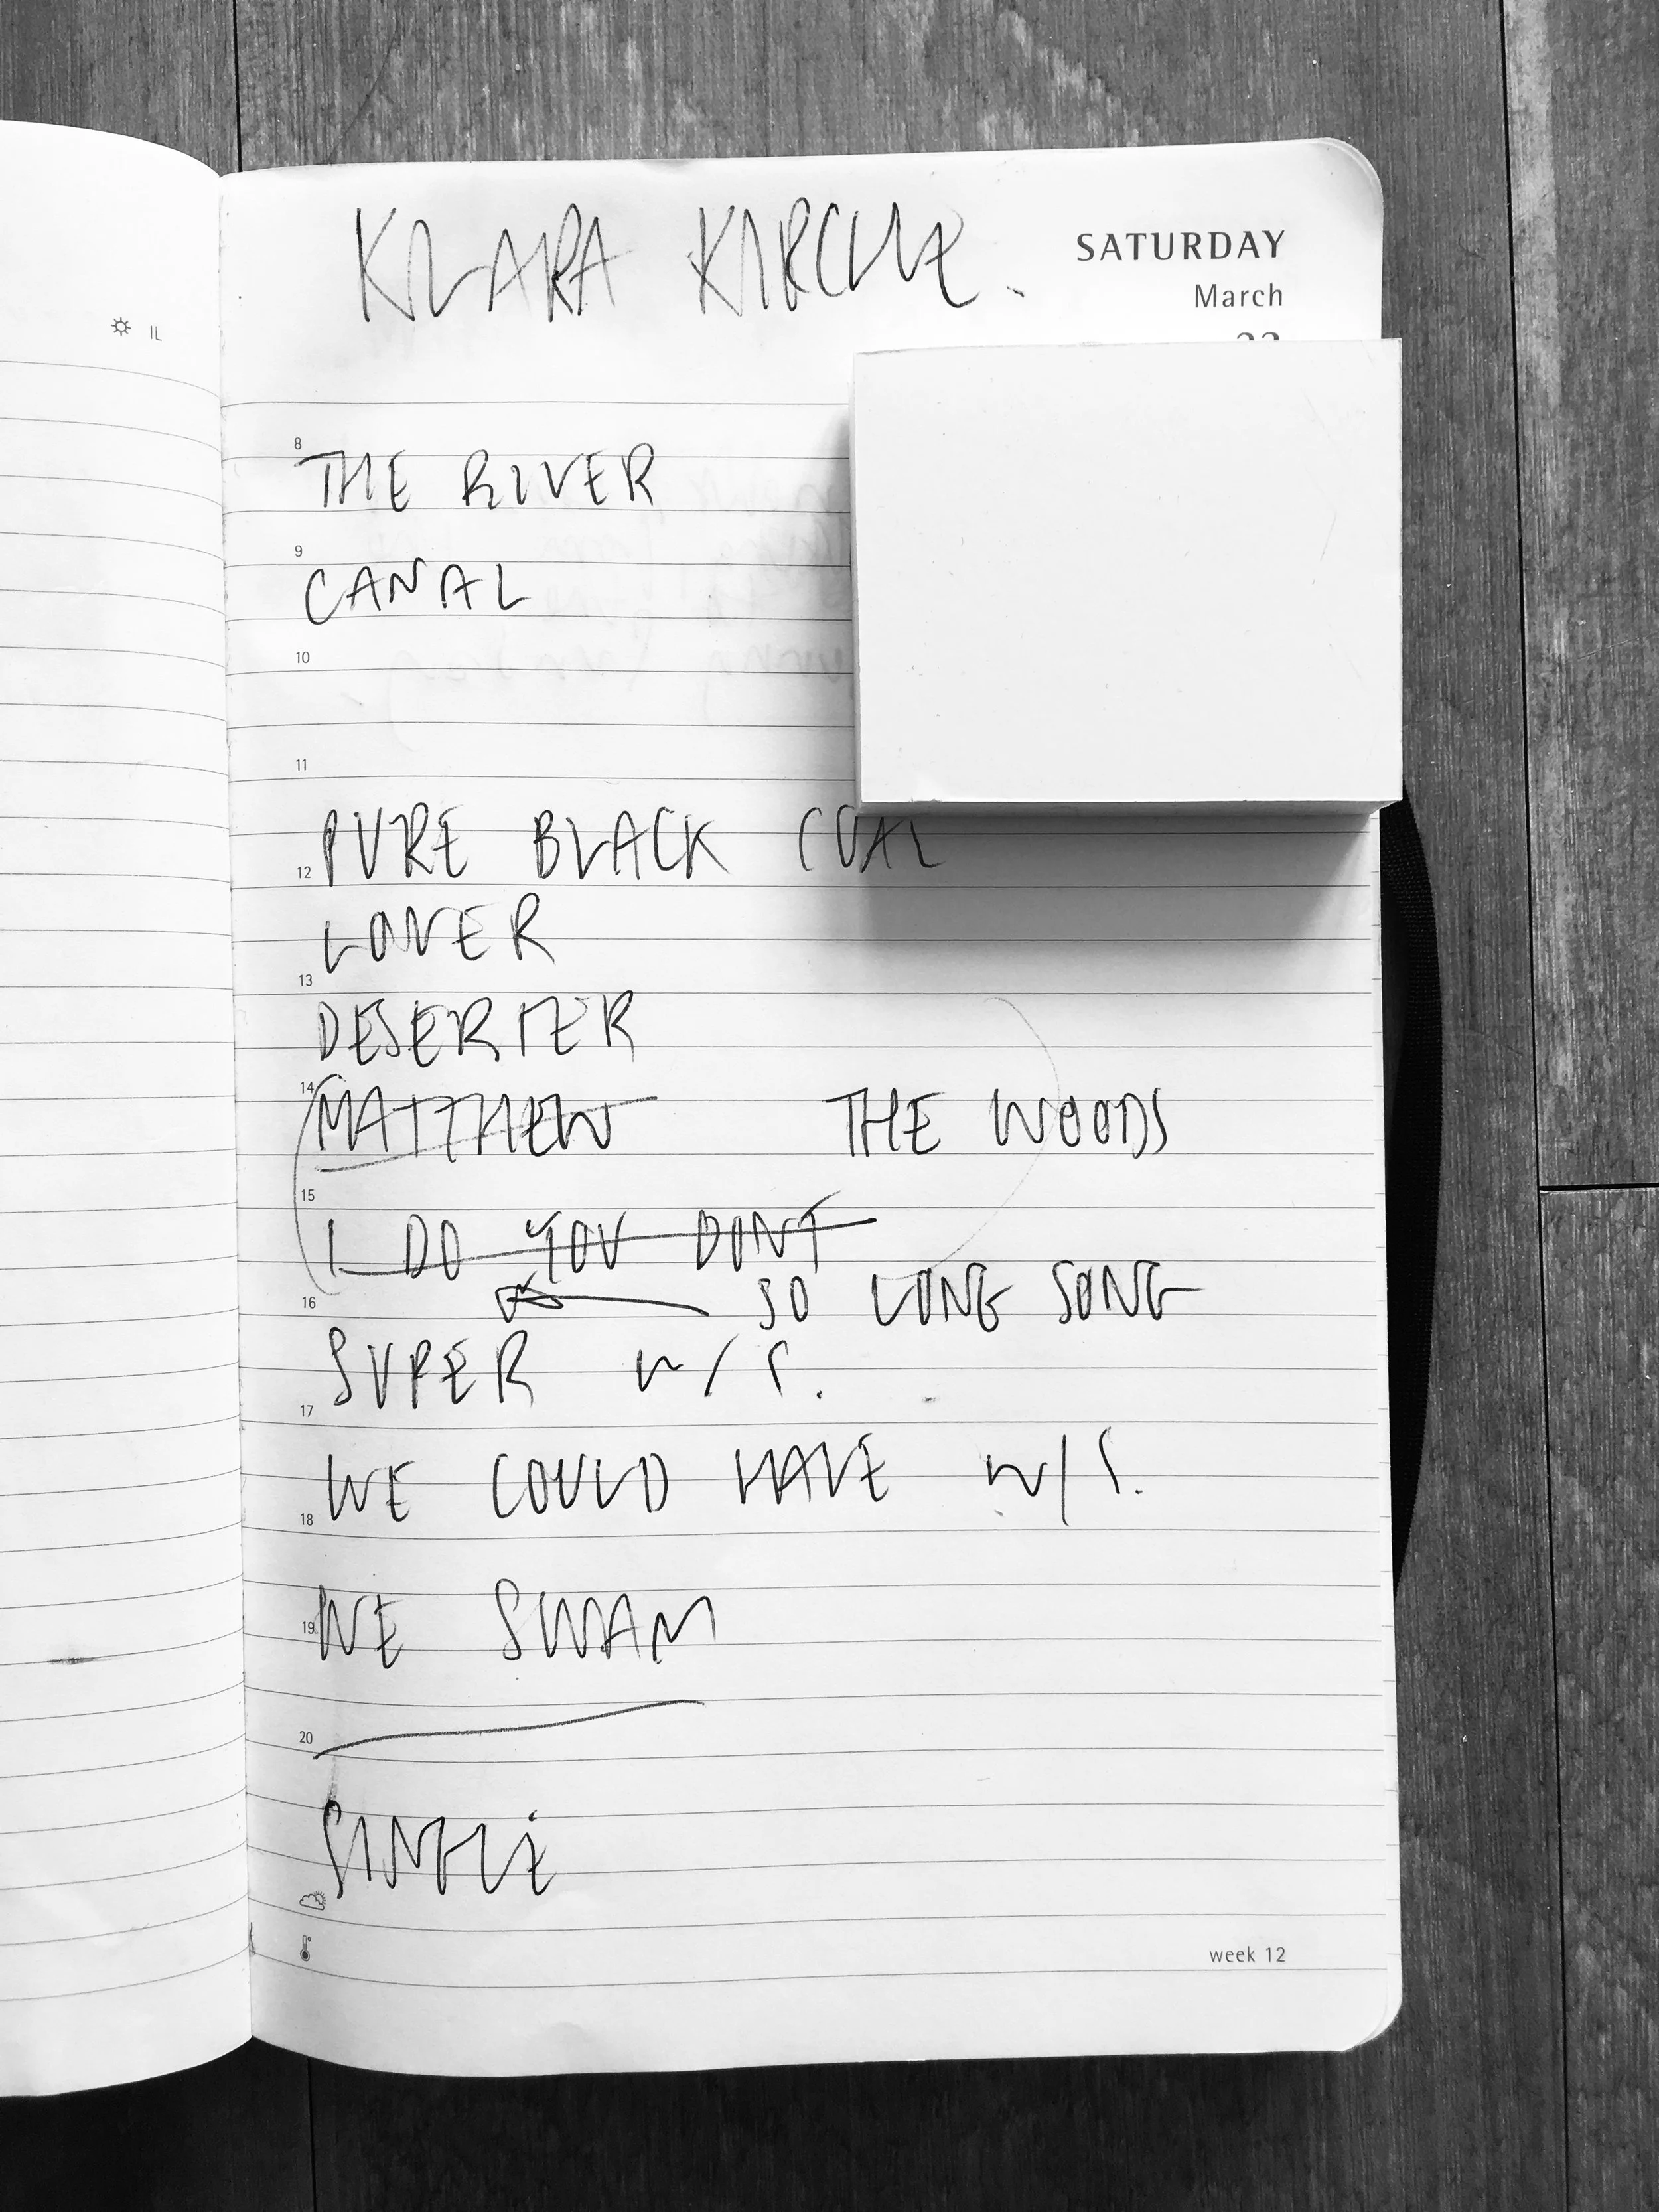 KLARA KIRCHE.
SATURDAY
March
IL
8
THE RIVER
9
CANAL
10
11
PURE BLACK COAL
12
LOVER
13
DESERTER
14
MATTHEW THE WOODS
15
I DO YOU DONT
16
SO LONG SONG
SUPER W/S.
17
WE COULD HAVE W/S.
18
WE SWAM
19
20
SINGLE
week 12